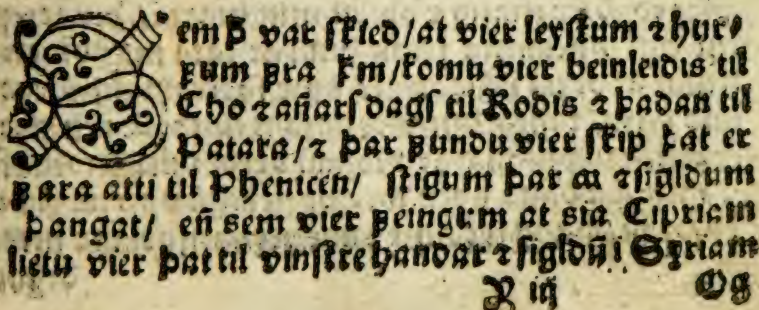 Sem þ var skied/at vier leystum ⁊ hur⸗
fum fra þm/komu vier beinleidis til
Cho ⁊ añars dags til Rodis ⁊ þadan til
Patara/⁊ þar fundu vier skip þat er
fara atti til Phenicen/ stigum þar aa ⁊ sigldum
þangat/ eñ sem vier feingum at sia Cipriam
lietu vier þat til vinstre handar ⁊ sigldū i Syriam
Og